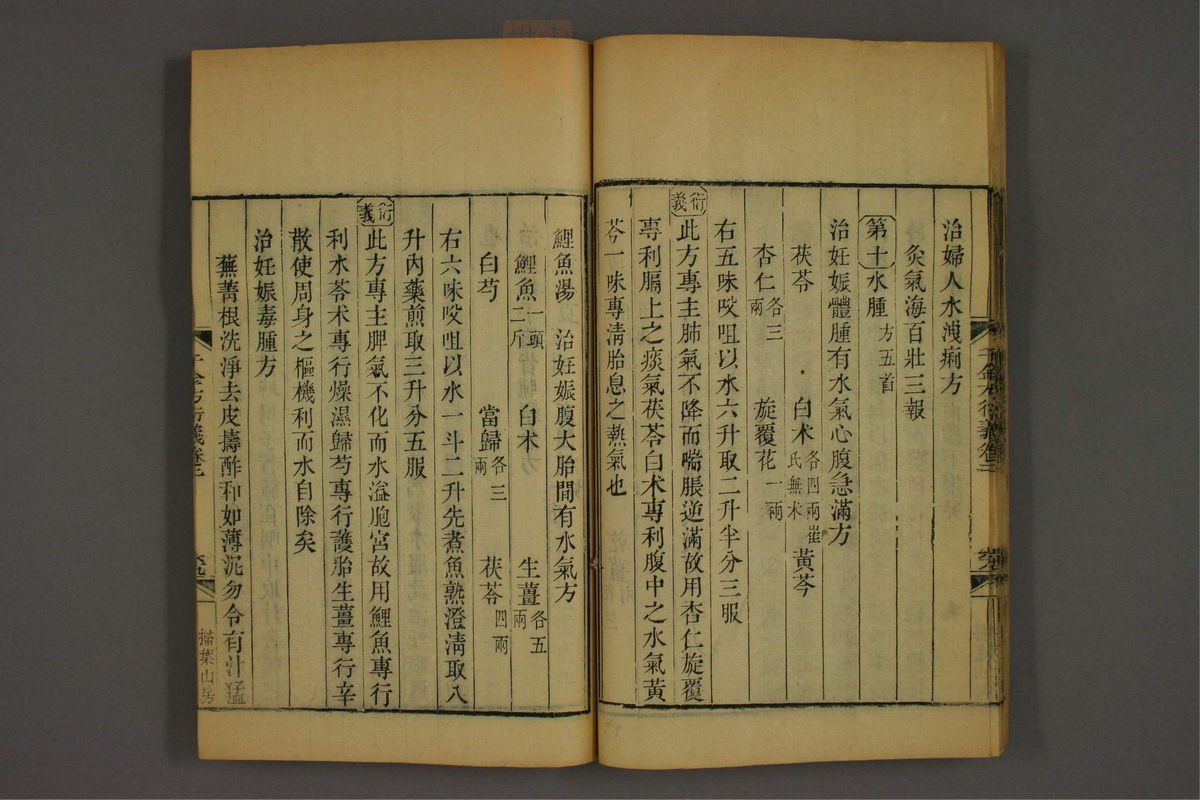 治婦人水洩痢方
灸氣海百壯三報
第十水腫方五首
治妊娠體腫有水氣心腹急滿方
茯苓 白术各四兩崔氏無术 黃芩
杏仁各三兩 旋覆花一兩
右五味㕮咀以水六升取二升半分三服
衍義
此方專主肺氣不降而喘脹逆滿故用杏仁旋覆
專利膈上之痰氣茯苓白术專利腹中之水氣黃
芩一味專淸胎息之熱氣也
鯉魚湯 治妊娠腹大胎間有水氣方
鯉魚一頭二斤 白术 生薑各五兩
白芍 當歸各三兩 茯苓四兩
右六味㕮咀以水一斗二升先煮魚熟澄淸取八
升內藥煎取三升分五服
衍義
此方專主脾氣不化而水溢胞宮故用鯉魚專行
利水苓术專行燥濕歸芍專行護胎生薑專行辛
散使周身之樞機利而水自除矣
治妊娠毒腫方
蕪菁根洗淨去皮擣酢和如薄泥勿令有汁猛
千金方衍義卷三
掃葉山房